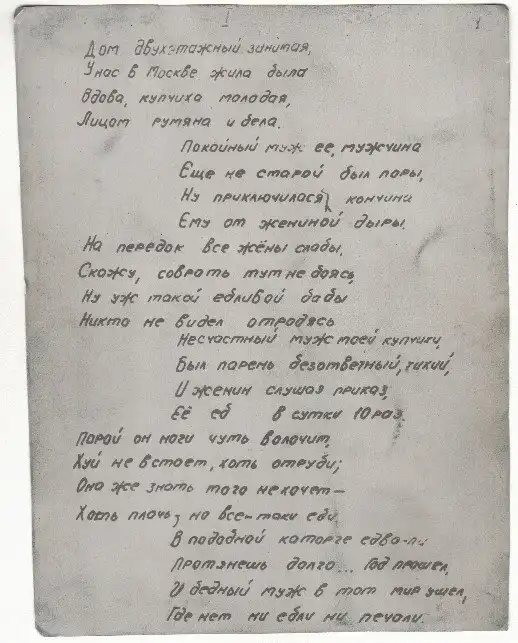 I
1
Дом двухэтажный занимая,
У нас в Москве жила была
Вдова, купчиха молодая,
Лицом румяна и бела.
Покойный муж ее, мужчина
Еще не старой был поры,
Ну приключилася кончина
Ему от жениной дыры.
На передок все жёны слабы,
Скажу, соврать тут не боясь,
Ну уж такой ебливой бабы
Никто не видел отродясь
Несчастный муж моей купчихи
Был парень безответный, тихий,
И женин слушая приказ,
Её еб в сутки 10 раз.
Порой он ноги чуть волочит,
Хуй не встает, хоть отруби;
Она же знать того не хочет –
Хоть плачь, но все-таки еби
В подобной каторге едва-ли
Протянешь долго... Год прошел,
И бедный муж в тот мир ушел,
Где нет ни ебли ни печали.